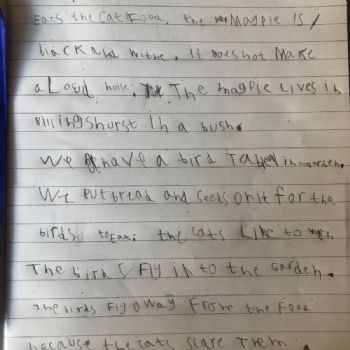 Eats the Cat Food. the Magpie is
black and withe. it Does not Make
a Loud noise. The magpie Lives in
Billingshurst in a bush.
We have a bird Tabel in
We Put bread and seeds on it for the
birds to Eat. the Cats Like to
The birds Fly in to the Garden.
The birds Fly away From the Food
because the cats scare Them.